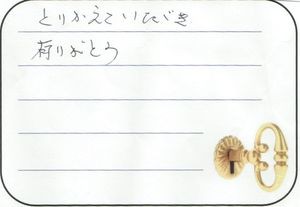 とりかえていただき
有りがとう